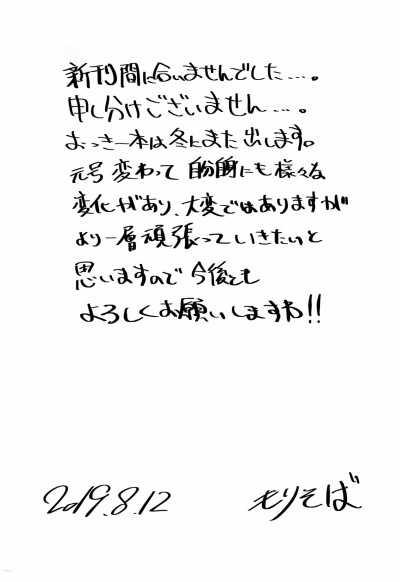 新刊間に合いませんでした…。
申し分けございません…。
おっきー本は冬にまた出します。
元号変わって自分的にも様々な
変化があり、大変ではありますが
より一層頑張っていきたいと
思いますので今後とも
よろしくお願いしますわ!!
2019.8.12
もりそば